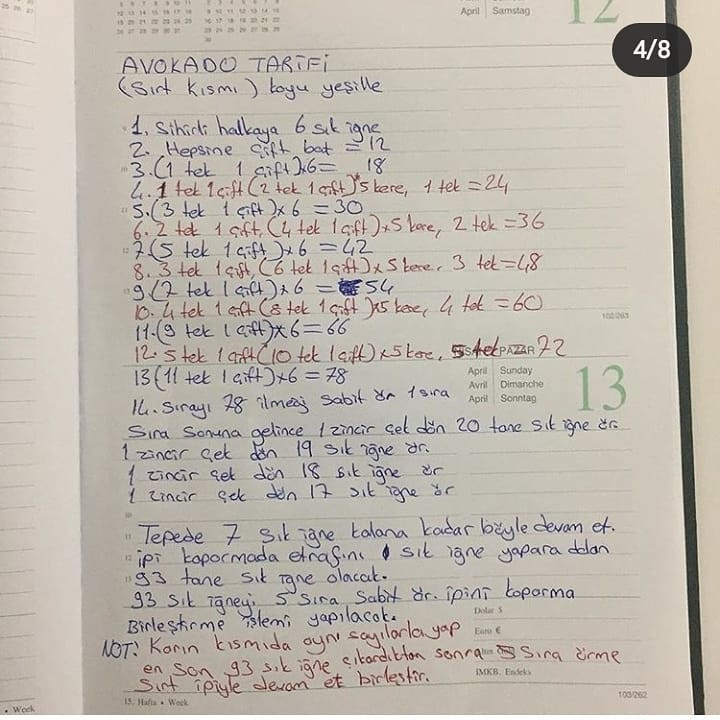 April Samstag
12
4/8
AVOKADO TARİFİ
(Sırt kısmı) koyu yeşille
1. Sihirli halkaya 6 sık iğne
2. Hepsine çift bat = 12
3. (1 tek 1 çift)x6= 18
4. 1 tek 1 çift (2 tek 1 çift)*5 kere, 1 tek = 24
5. (3 tek 1 çift)x6 = 30
6. 2 tek 1 çift, (4 tek 1 çift)x5 kere, 2 tek = 36
7. (5 tek 1 çift)x6 = 42
8. 3 tek 1 çift, (6 tek 1 çift)x5 kere, 3 tek = 48
9. (7 tek 1 çift)x6 = 54
10. 4 tek 1 çift (8 tek 1 çift)x5 kere, 4 tek = 60
102/263
11. (9 tek 1 çift)x6 = 66
12. 5 tek 1 çift (10 tek 1 çift)x5 kere, 5 tek 72
PAZAR
13 (11 tek 1 çift)x6 = 78
April Sunday
Avril Dimanche
April Sonntag
13
14. Sırayı 78 ilmeği sabit ör 1 sıra
Sıra sonuna gelince 1 zincir çek dön 20 tane sık iğne ör.
1 zincir çek dön 19 sık iğne ör.
1 zincir çek dön 18 sık iğne ör
1 zincir çek dön 17 sık iğne ör
Tepede 7 sık iğne kalana kadar böyle devam et.
ipi koparmada etrafını sık iğne yapara dolan
93 tane sık iğne olacak.
93 sık iğneyi 5 sıra sabit ör. ipini koparma
Dolar $
Birleştirme işlemi yapılacak.
Euro €
NOT: Karın kısmıda aynı sayılarla yap
en son 93 sık iğne çıkardıktan sonra sıra örme
IMKB. Endeks
sırt ipiyle devam et birleştir.
15. Hafta • Week
103/262
• Week